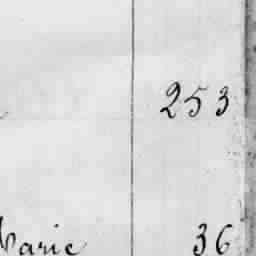 253
Marie 36